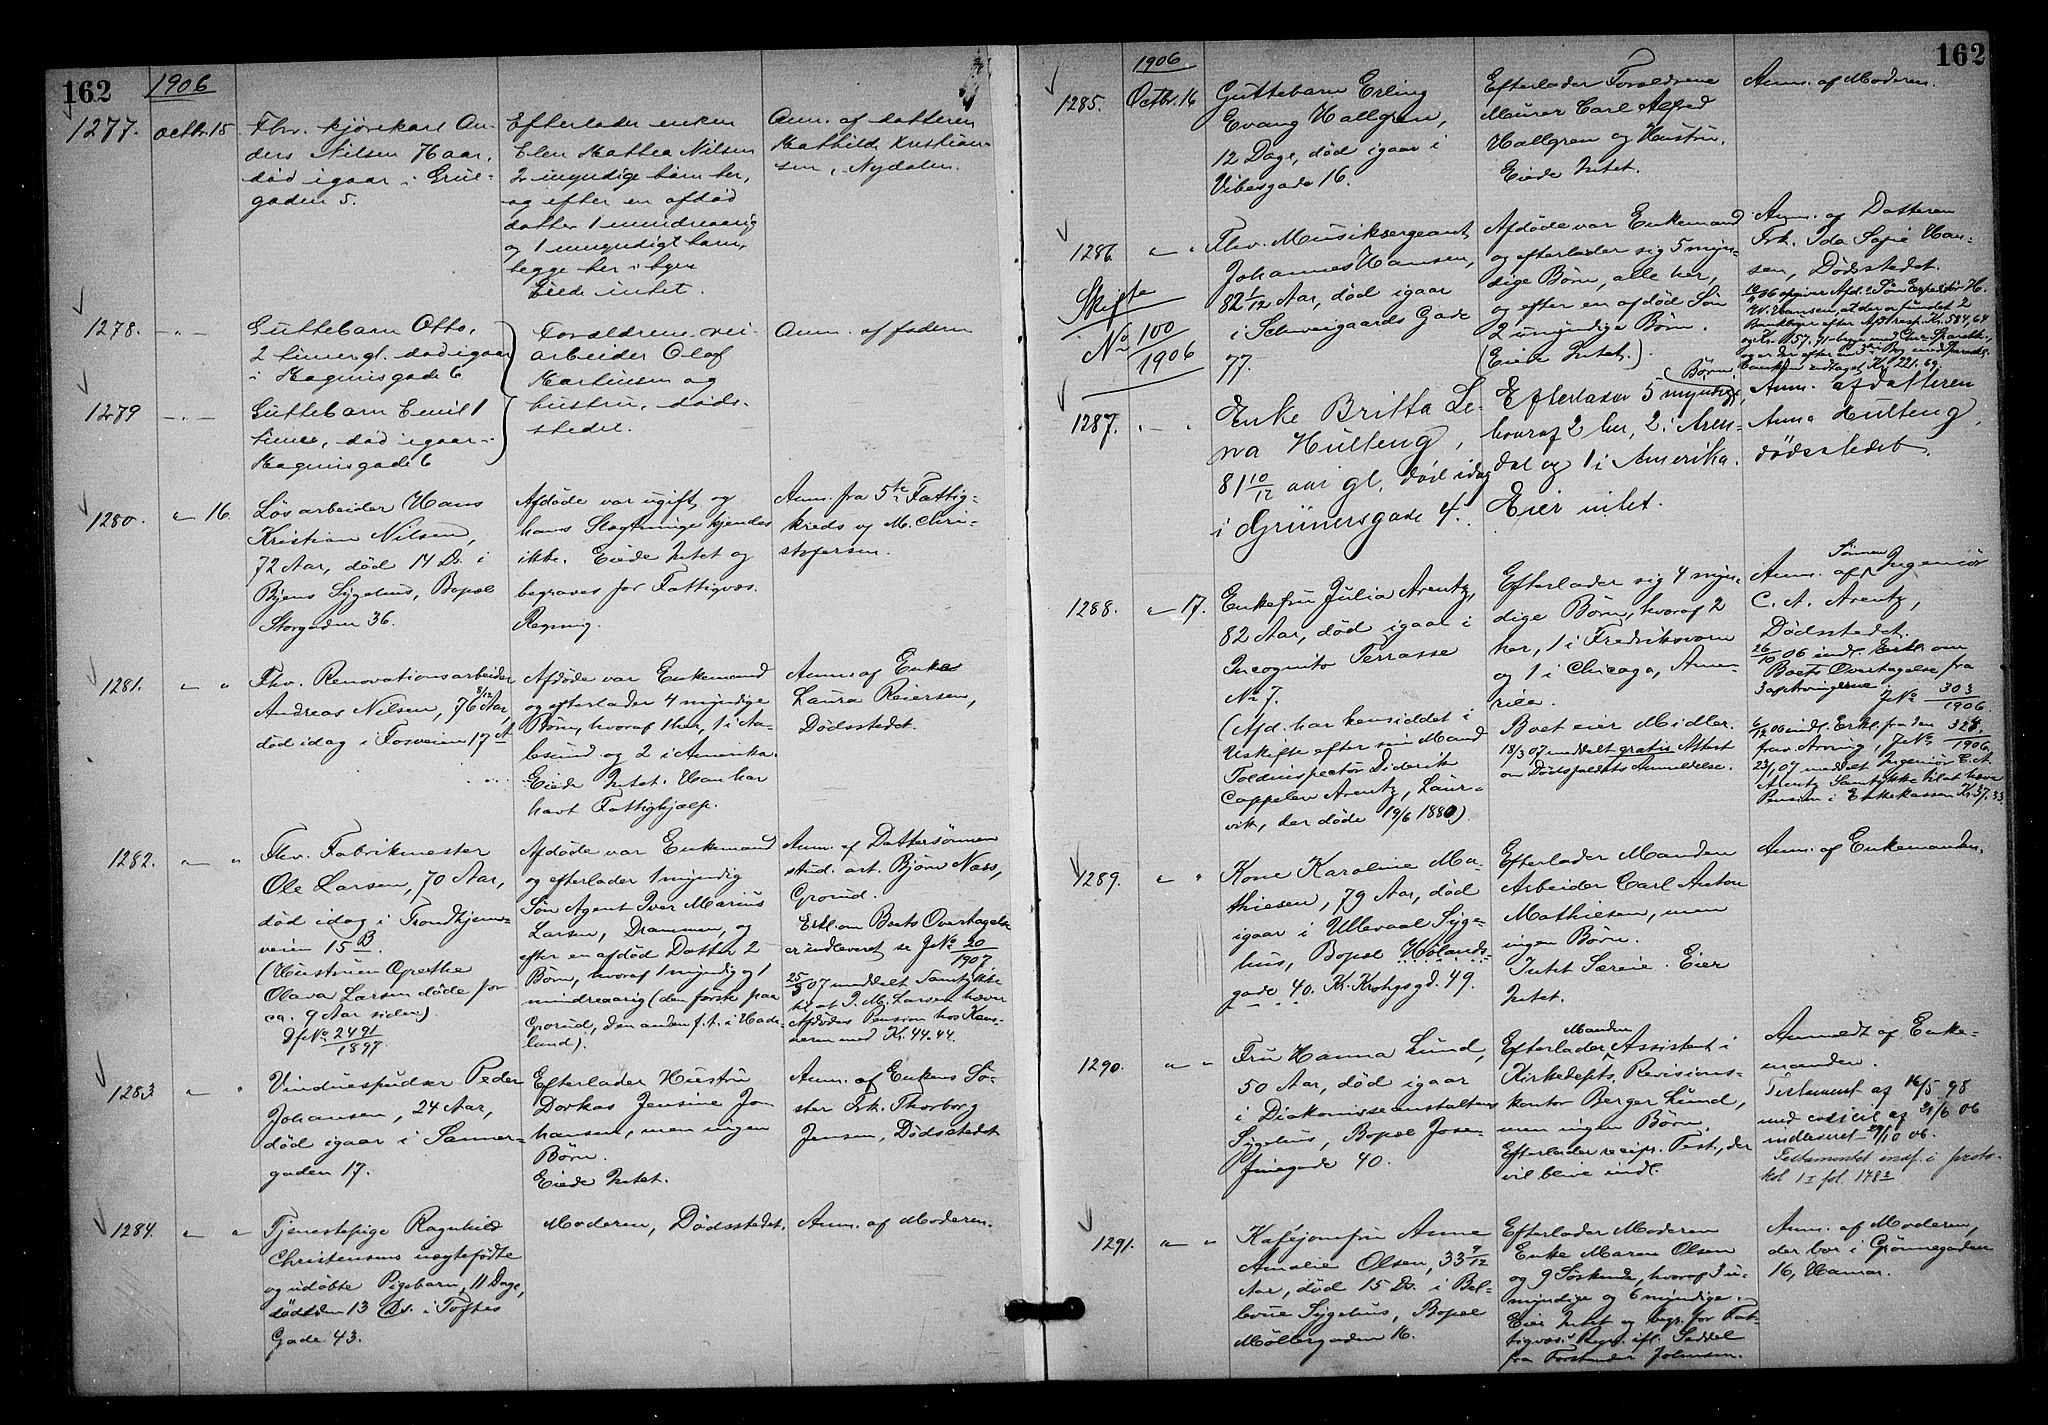 162
1906
1277.
octbr. 15
Fhv. kjørekarl An-
ders Nilsen 74 aar,
død igaar i Grue-
gaden 5.
Efterlader enken
Elen Mathea Nilsen
2 myndige barn her,
og efter en afdød
datter 1 mindreaarig
og 1 umyndigt barn,
begge her i byen
Eiede intet.
Anm. af datteren
Mathilde Kristian-
sen, Nydalen.
1278. - " -
Guttebarn Otto,
2 timer gl. død igaar
i Magnusgade 6
Forældrene vei-
arbeider Olaf
Martinsen og
hustru, døds-
stedet.
Anm. af faderen
1279 - " -
Guttebarn Emil 1
time, død igaar i
Magnusgade 6
1280. " 16.
Løsarbeider Hans
Kristian Nilsen,
72 Aar, død 14 Ds. i
Byens Sygehus, Bopæl
Storgaden 36.
Afdøde var ugift og
hans Slægtninge kjendes
ikke. Eiede Intet og
begraves for Fattigvæs.
Regning.
Anm. fra 5te Fattig-
kreds v M. Chri-
stofersen.
1281. " "
Fhv. Renovationsarbeider
Andreas Nilsen, 76 3/12 Aar,
død idag i Fosveien 17 A
Afdøde var Enkemand
og efterlader 4 myndige
Børn, hvoraf 1 her, 1 i Aa-
lesund og 2 i Amerika.
Eiede Intet. Han har
havt Fattighjælp.
Anm. af Enke
Laura Reiersen,
Dødsstedet.
1282. " "
Fhv. Fabrikmester
Ole Larsen, 70 Aar,
død idag i Trondhjems-
veien 15 B
(Hustruen Grethe
Olava Larsen døde for
ca. 9 Aar siden)
Df No 2491/1897
Afdøde var Enkemand
og efterlader 1 myndig
Søn Agent Iver Marius
Larsen, Drammen, og
efter en afdød Datter 2
Børn, hvoraf 1 myndig og 1
mindreaarig (den første paa
Grorud, den anden f. t. i Hade-
land).
Anm. af Dattersønnen
stud. art. Bjørn Næss,
Grorud.
Erkl. om Boets Overtagelse
er indleveret se J. No 20/1907
25/3 07 meddelt Samtykke
til at I. M. Larsen hæver
Afdødes Pension hos Kæm-
neren med Kr. 44.44.
1283 " "
Vinduespudser Peder
Johansen, 24 Aar,
død igaar i Sanner-
gaden 17.
Efterlader Hustru
Dorkas Jensine Jo-
hansen, men ingen
Børn.
Eiede Intet.
Anm. af Enkens Sø-
ster Frk. Thorborg
Jensen, Dødsstedet
1284. " "
Tjenestepige Ragnhild
Christensens uægtefødte
og udøbte Pigebarn, 11 Dage,
død den 13 Ds. i Toftes
Gade 43.
Moderen, Dødsstedet.
Anm. af Moderen.
162
1906
1285. Octbr. 16
Guttebarn Erling
Evang Hallgren,
12 Dage, død igaar i
Vibesgade 16.
Efterlader Forældrene
Murer Carl Alfred
Hallgren og Hustru.
Eiede Intet.
Anm. af Moderen.
1286. " "
Skifte
No 100/1906
Fhv. Musiksergeant
Johannes Hansen,
82 1/12 Aar, død igaar
i Schweigaards Gade
77.
Afdøde var Enkemand
og efterlader sig 5 myn-
dige Børn, alle her,
og efter en afdød Søn
2 umyndige Børn.
(Eiede Intet.)
Anm. af Datteren
Frk. Ida Sofie Han-
sen, Dødsstedet.
1287. " "
Enke Britta Le-
na Hulteng,
81 10/12 aar gl, død idag
i Grünersgade 4.
Efterlader 5 myndige Børn,
hvoraf 2 her, 2 i Aren-
dal og 1 i Amerika.
Eier intet.
Anm. af datteren
Anna Hulteng,
dødsstedet.
1288. " 17.
Enkefru Julia Arentz,
82 Aar, død igaar i
Incognito Terrasse
No 7.
(Afd. har hensiddet i
Uskifte efter sin Mand
Toldinspektør Diderik
Cappelen Arentz, Laur-
vik, der døde 19/6 1880).
Efterlader sig 4 myn-
dige Børn, hvoraf 2
her, 1 i Fredriksværn
og 1 i Chicago, Ame-
rika.
Boet eier Midler.
18/3 07 meddelt gratis Attest
om Dødsfaldets Anmeldelse.
Anm. af Sønnen Ingeniør
C. A. Arentz,
Dødsstedet.
26/10 06 indl. Erkl. om
Boets Overtagelse fra
3 af Arvingerne, J. No 303/1906.
6/12 06 indl. Erkl. fra den
frav. Arving, J. No 328/1906.
23/1 07 meddelt Ingeniør C. A.
Arentz Samtykke til at hæve
Pension i Enkekassen Kr. 37.33
1289. " "
Kone Karoline Ma-
thiesen, 79 Aar, død
igaar i Ullevaal Syge-
hus, Bopæl Hølands-
gade 40. Kr. Krohgsgd. 49.
Efterlader Manden
Arbeider Carl Anton
Mathiesen, men
ingen Børn.
Intet Særeie. Eier
Intet.
Anm. af Enkemanden.
1290. " "
Fru Hanna Lund,
50 Aar, død igaar
i Diakonisseanstaltens
Sygehus, Bopæl Jose-
finegade 40.
Efterlader Manden Assistent i
Kirkedepts. Revisions-
kontor Berger Lund,
men ingen Børn.
Efterlader recipr. Test., der
vil blive indl.
Anmeldt af Enke-
manden.
Testament af 16/5 98
med codicil af 21/6 06
indleveret 29/10 06.
Testamentet indf. i proto-
kol 1 I fol. 148 2
1291. " "
Kafejomfru Anne
Amalie Olsen, 33 9/12
Aar, død 15 Ds. i Bel-
levue Sygehus, Bopæl
Møllergaden 16.
Efterlader Moderen
Enke Maren Olsen
og 9 Søskende, hvoraf 3 u-
myndige og 6 myndige.
Eier Intet og begr. for Fat-
tigvæs. Regn. ifl. Seddel
fra Forstander Johnsen.
Anm. af Moderen,
der bor i Grønnegaden
16, Hamar.